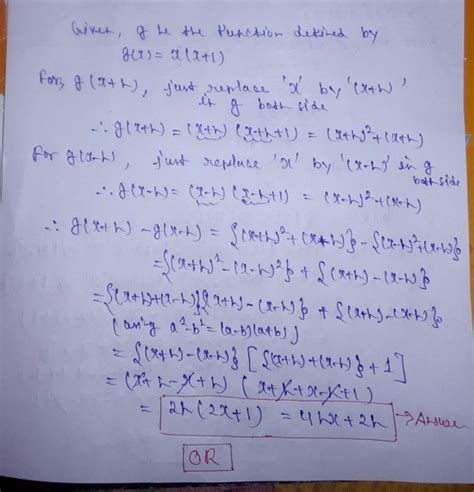 Given, g be the function defined by
g(x) = x(x+1)
For, g(x+h), just replace 'x' by '(x+h)'
in g both side
∴ g(x+h) = (x+h) (x+h+1) = (x+h)² + (x+h)
For g(x-h), just replace 'x' by '(x-h)' in g
both side
∴ g(x-h) = (x-h) (x-h+1) = (x-h)² + (x-h)
∴ g(x+h) - g(x-h) = {(x+h)² + (x+h)} - {(x-h)² + (x-h)}
= {(x+h)² - (x-h)²} + {(x+h) - (x-h)}
= {(x+h)+(x-h)}{(x+h) - (x-h)} + {(x+h) - (x-h)}
a²-b² = (a-b)(a+b)
= {(x+h) - (x-h)} [{(x+h) + (x-h)} + 1]
= (x+h-x+h) (x+h+x-h+1)
= 2h(2x+1) = 4hx+2h → Answer
OR